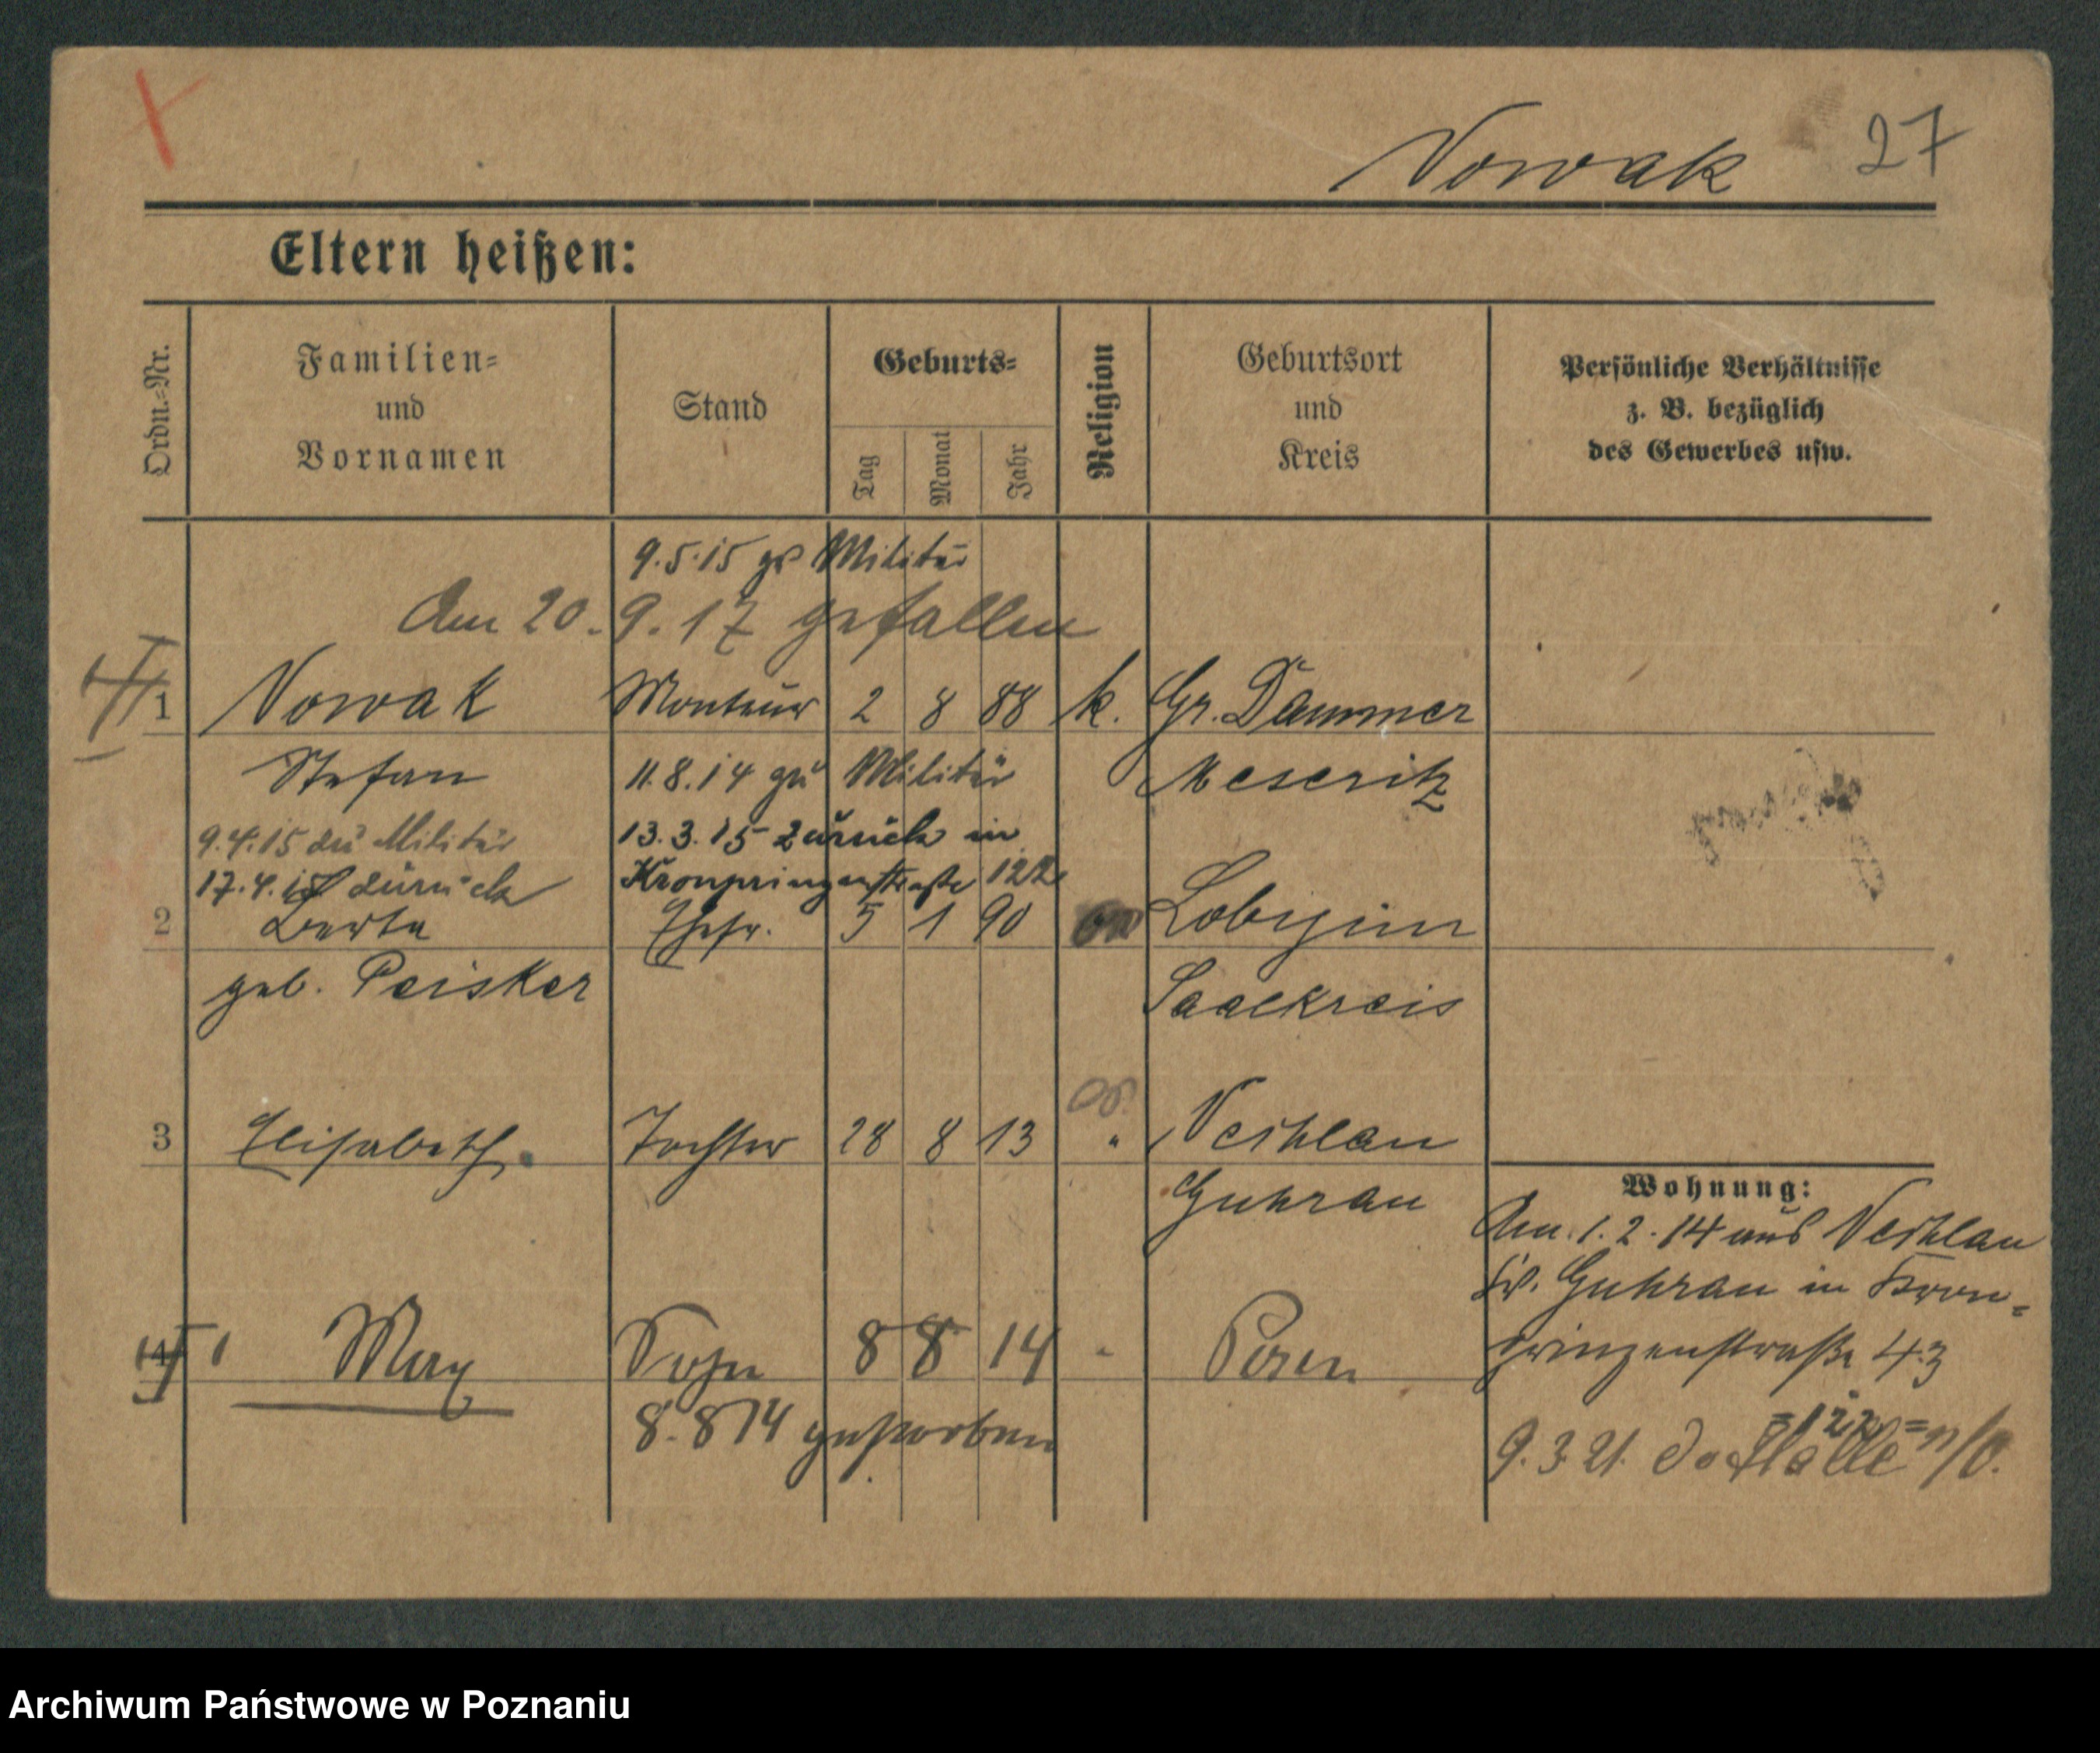 Nowak 27
Eltern heißen:
Ordn.-Nr.
Familien-
und
Vornamen
Stand
Geburts-
Tag
Monat
Jahr
Religion
Geburtsort
und
Kreis
Persönliche Verhältnisse
z. B. bezüglich
des Gewerbes usw.
9.5.15 zu Militär
Am 20.9.17 gefallen
1 Nowak Monteur 2 8 88 k. Gr. Dammer
Stefan 11.8.14 zu Militär Meseritz
9.4.15 zu Militär 13.3.15 zurück in
17.4.15 zurück Kronprinzenstraße 122
2 Berta Ehefr. 5 1 90
geb. Peisker Saalkreis
3 Elisabeth Tochter 28 8 13 "
Guhrau
Wohnung:
Am 1.2.14 aus
Kr. Guhrau in Kron-
prinzenstraße 43
4 Max Sohn 8 8 14 Posen
8.8 14 gestorben
9.3.21. Halle
Archiwum Państwowe w Poznaniu